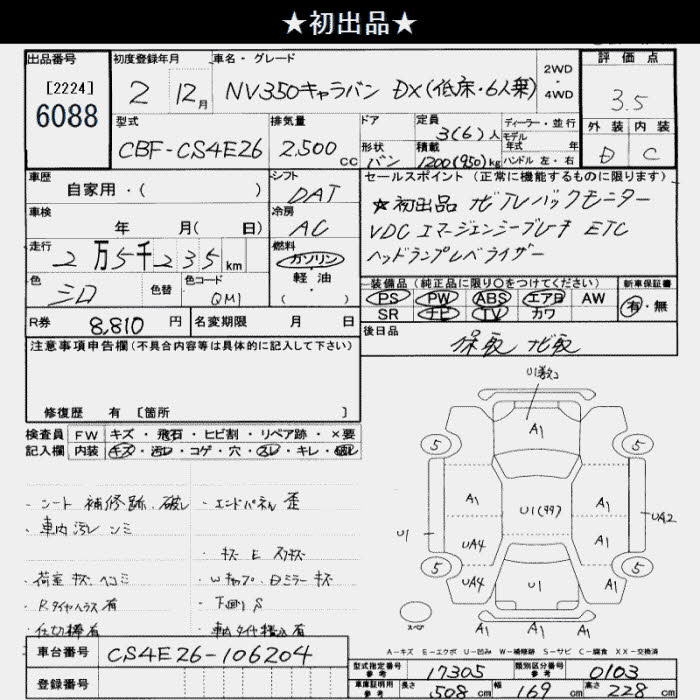 ★初出品★
出品番号
[2224]
6088
初度登録年月
2 12月
車名・グレード
NV350キャラバン DX(低床・6人乗)
2WD
4WD
評価点
3.5
外装 内装
D C
型式
CBF-CS4E26
排気量
2,500 cc
ドア
形状
バン
定員
3(6)人
積載
1200(950)kg
ディーラー・並行
モデル
年式 年
ハンドル 左・右
車歴
自家用・( )
シフト
DAT
車検
年 月( 日)
冷房
AC
走行
2万5千235km
燃料
ガソリン
軽油
( )
色
シロ
色替
色コード
QM1
R券
8,810 円
名変期限 月 日
セールスポイント(正常に機能するものに限ります)
☆初出品 ナビTVバックモニター
VDC エマージェンシーブレーキ ETC
ヘッドランプレベライザー
装備品(純正品に限り○をつけてください)
PS PW ABS エアB AW
SR ナビ TV カワ
新車保証書
有・無
後日品
保取 ナビ取
注意事項申告欄(不具合内容等は具体的に記入して下さい)
修復歴 有 [箇所 ]
検査員
記入欄
FW キズ・飛石・ヒビ割・リペア跡・×要
内装 キズ・汚レ・コゲ・穴・スレ・キレ・破レ
・シート 補修跡、破レ
・車内汚レ シミ
・荷室 キズ ヘコミ
・Rタイヤハウス 有
・仕切棒有
・エンドパネル 歪
・キズ E スリキズ
・Wキャップ・Bミラー キズ
・下回り S
・車載タイヤ積込有
U1数コ
A1
5 5
A1 U1(99) A1
U1 UA2
UA4 A1
5 5
UA4 U1 A1
スペア
A1 A1 A1
A-キズ E-エクボ U-凹み W-補修跡 S-サビ C-腐食 XX-交換済
車台番号
CS4E26-106204
登録番号
型式指定番号
参考
17305
類別区分番号
参考
0103
車庫証明用
参考
長さ 508 cm 幅 169 cm 高さ 228 cm